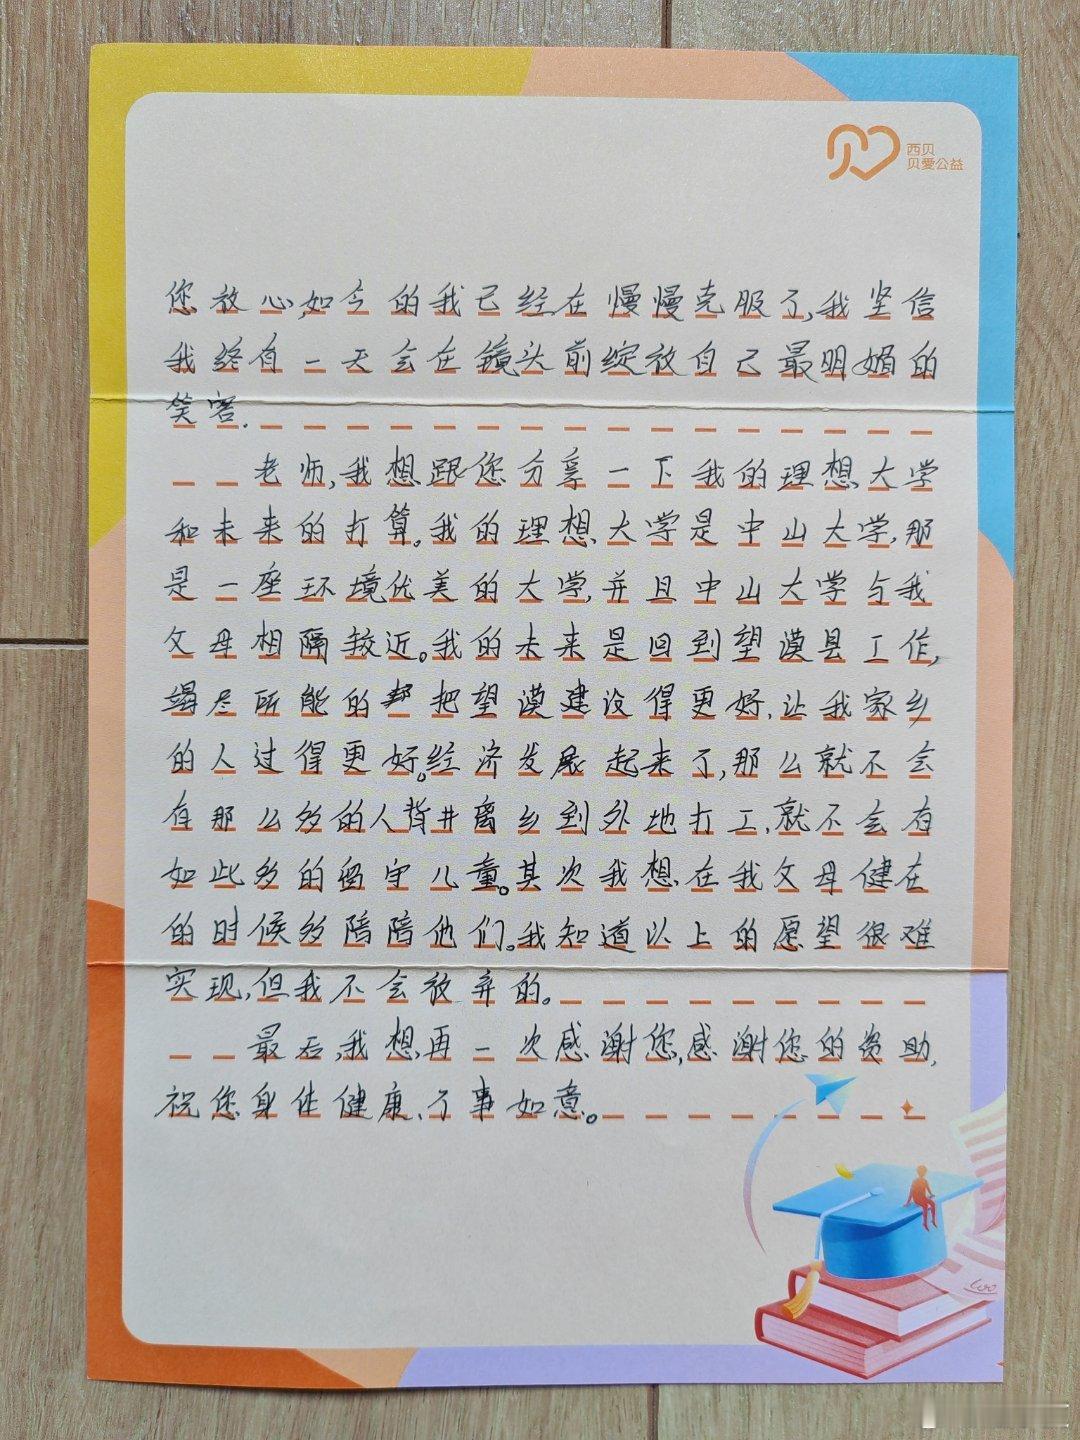 西贝
贝爱公益
您放心,如今的我已经在慢慢克服了,我坚信
我终有一天会在镜头前绽放自己最明媚的
笑容.
老师,我想跟您分享一下我的理想大学
和未来的打算。我的理想大学是中山大学,那
是一座环境优美的大学,并且中山大学与我
父母相隔较近。我的未来是回到望谟县工作,
竭尽所能的帮把望谟建设得更好,让我家乡
的人过得更好。经济发展起来了,那么就不会
有那么多的人背井离乡到外地打工,就不会有
如此多的留守儿童。其次我想在我父母健在
的时候多陪陪他们。我知道以上的愿望很难
实现,但我不会放弃的。
最后,我想再一次感谢您,感谢您的资助,
祝您身体健康、万事如意。